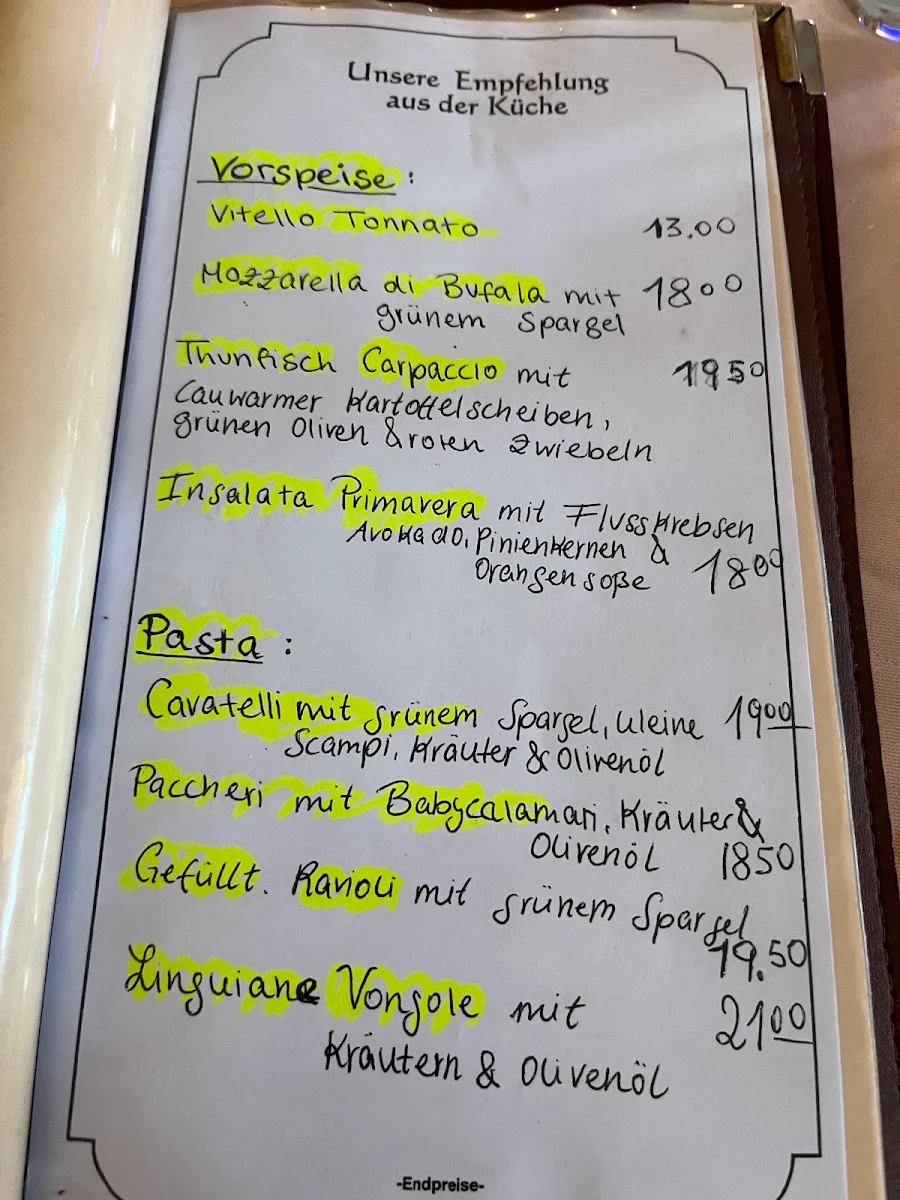 Unsere Empfehlung
aus der Küche
Vorspeise:
Vitello Tonnato 13.00
Mozzarella di Bufala mit 1800
grünem Spargel
Thunfisch Carpaccio mit 1950
Lauwarmer Kartottelscheiben,
grünen Oliven & roten Zwiebeln
Insalata Primavera mit Flusskrebsen
Avokado, Pinienkernen &
Orangensoße 1800
Pasta:
Cavatelli mit grünem Spargel, kleine 1900
Scampi, Kräuter & Olivenöl
Paccheri mit Babycalamari, Kräuter &
Olivenöl 1850
Gefüllt. Ravioli mit grünem Spargel
19.50
Linguiane Vongole mit 2100
Kräutern & Olivenöl
-Endpreise-